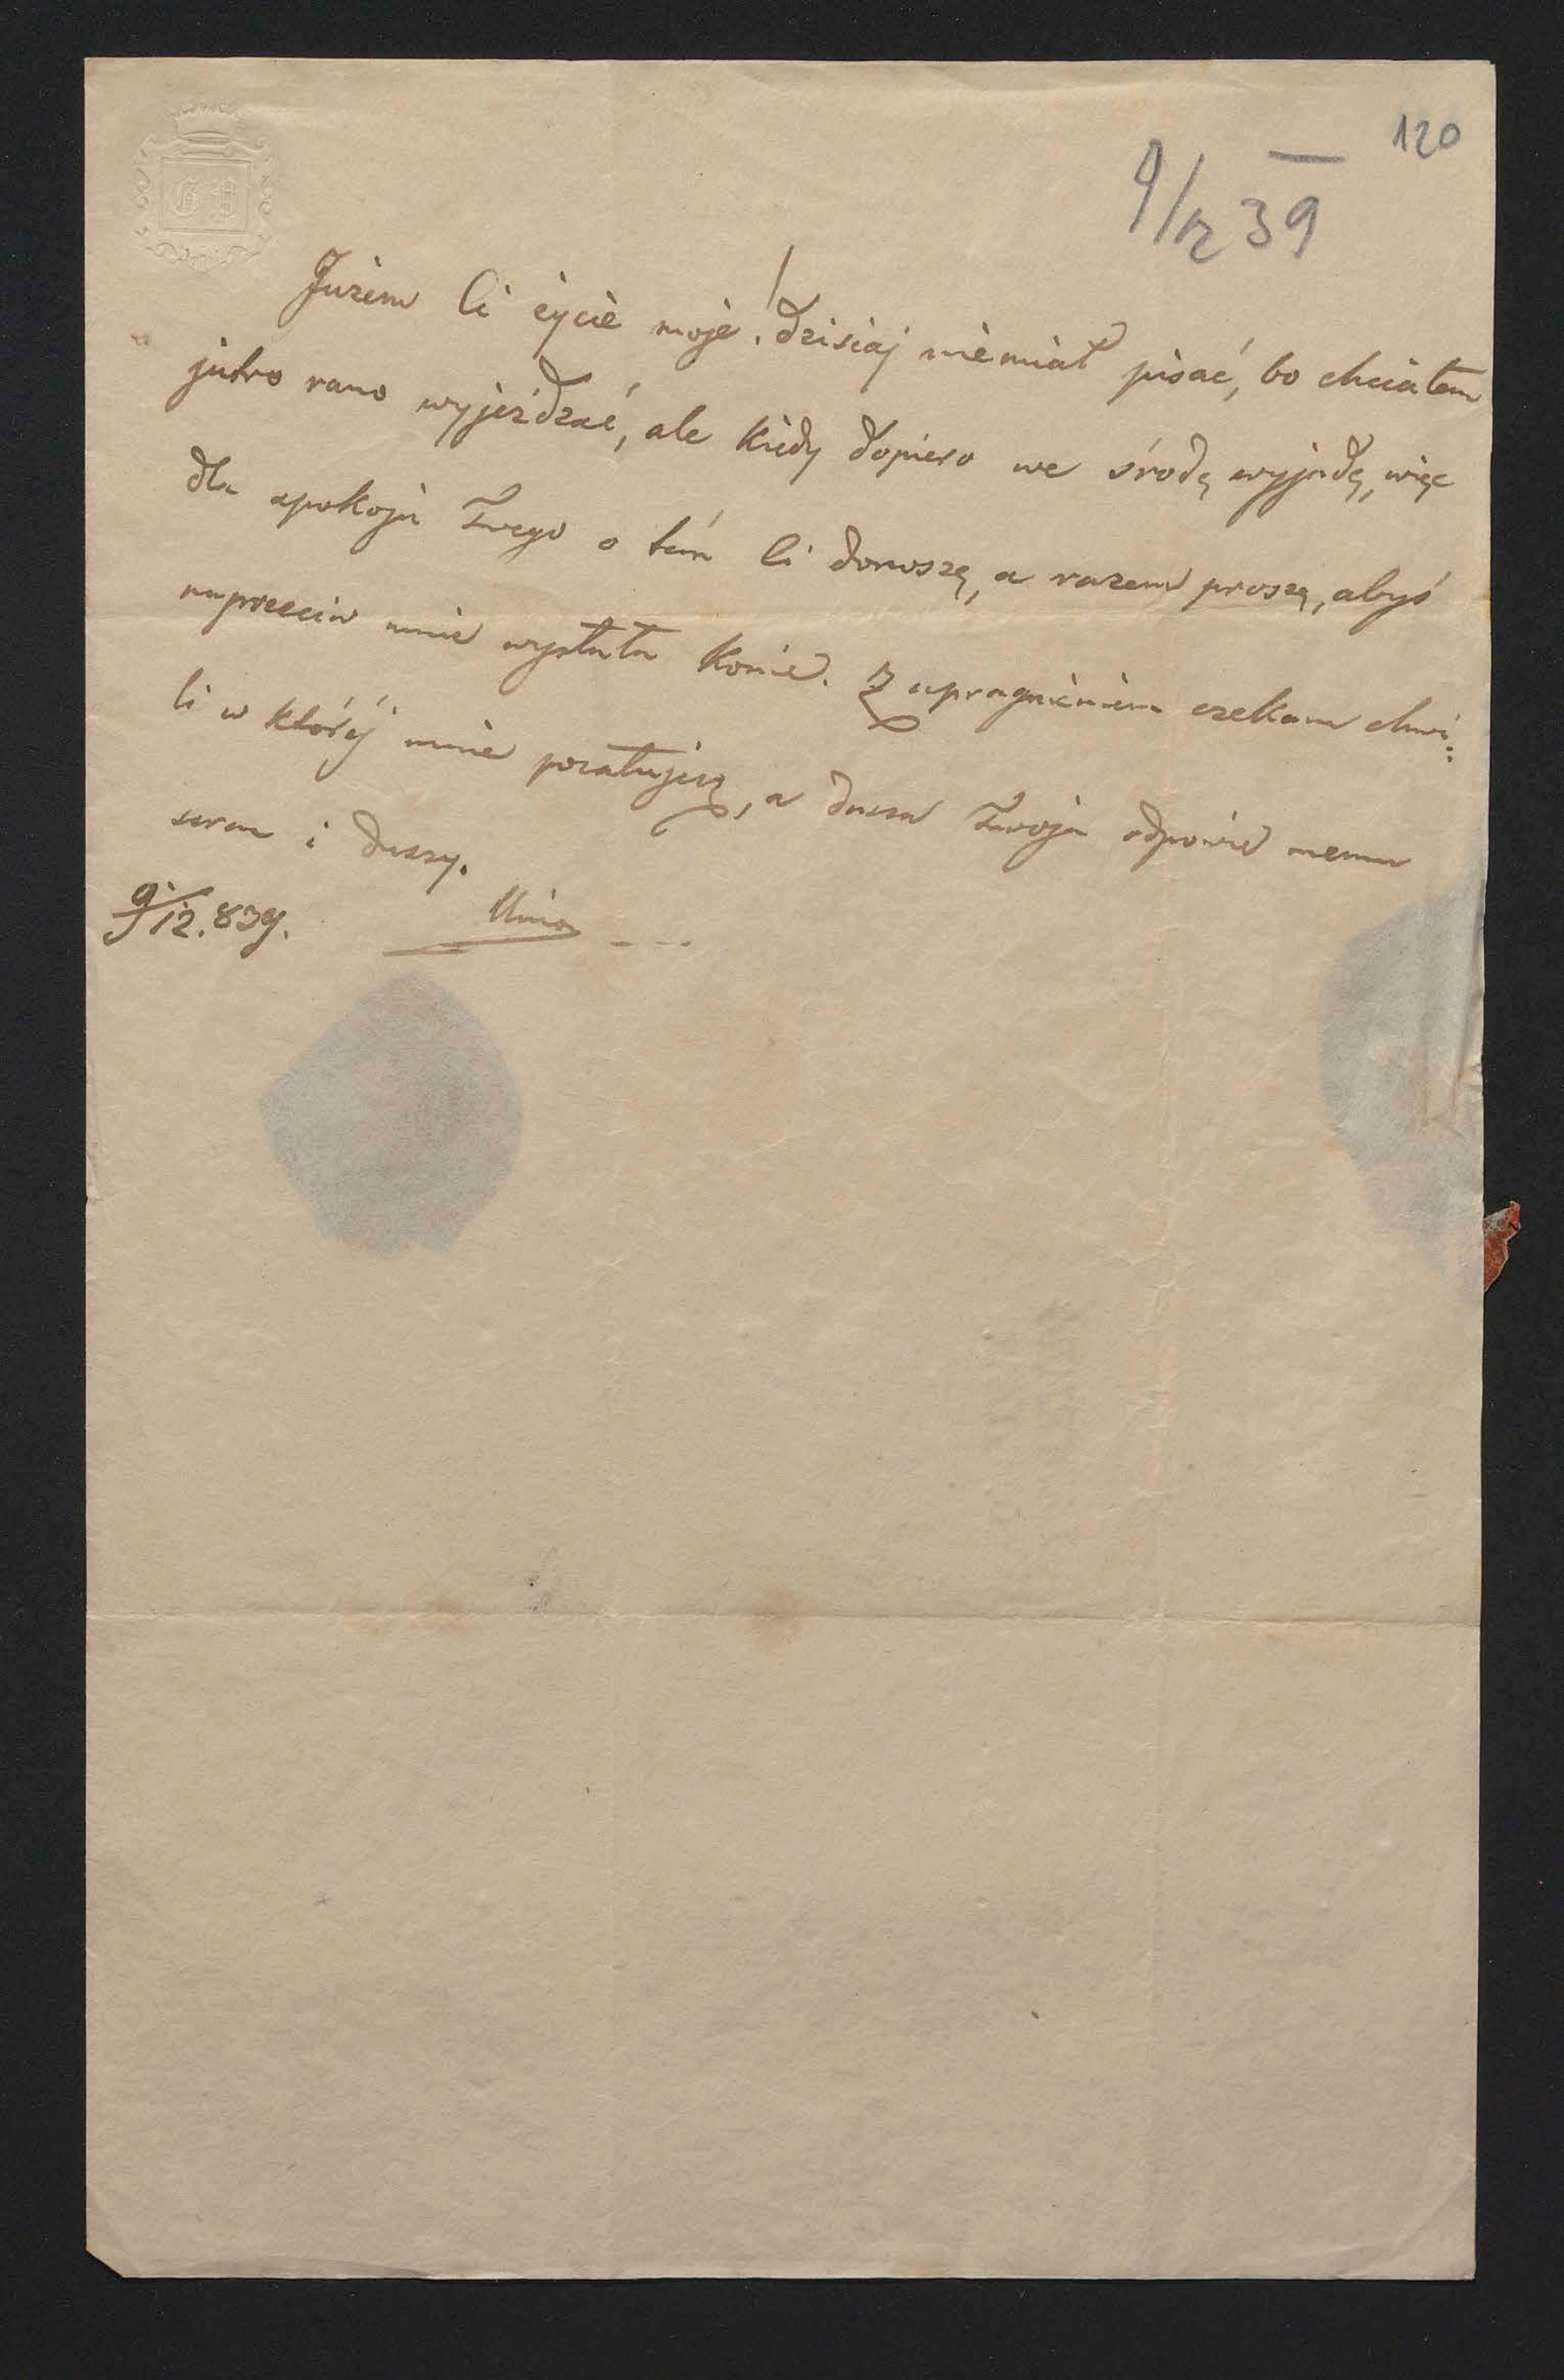 120
9/12 39
G P
Jużem Ci życie moje! dzisiaj niemiał pisać, bo chciałem
jutro rano wyjeżdzać, ale kiedy dopiero we środę wyjadę, więc
dla spokoju Twego o tém Ci donoszę, a razem proszę, abyś
naprzeciw mnie wysłała konie. Z upragnieniem czekam chwi:
li w któréj mnie pocałujesz, a dusza Twoja odpowie memu
sercu i duszy.
9/12. 839.